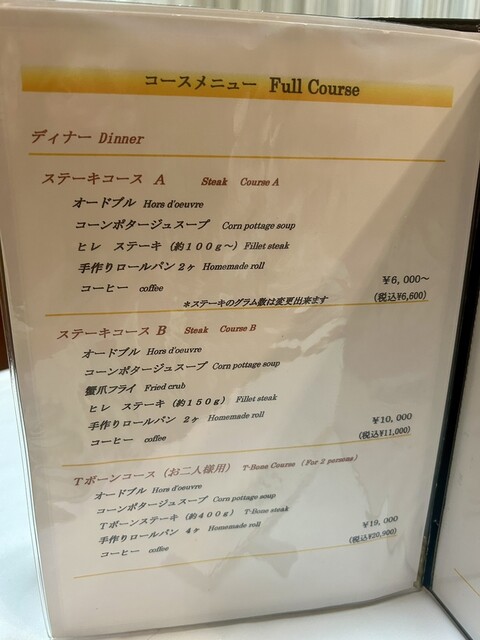 コースメニュー Full Course
ディナー Dinner
ステーキコース A Steak Course A
オードブル Hors d'oeuvre
コーンポタージュスープ Corn pottage soup
ヒレ ステーキ (約100g〜) Fillet steak
手作りロールパン 2ヶ Homemade roll
コーヒー coffee
¥6,000〜
*ステーキのグラム数は変更出来ます (税込¥6,600)
ステーキコース B Steak Course B
オードブル Hors d'oeuvre
コーンポタージュスープ Corn pottage soup
蟹爪フライ Fried crub
ヒレ ステーキ (約150g) Fillet steak
手作りロールパン 2ヶ Homemade roll
コーヒー coffee
¥10,000
(税込¥11,000)
Tボーンコース (お二人様用) T-Bone Course (For 2 persons)
オードブル Hors d'oeuvre
コーンポタージュスープ Corn pottage soup
Tボーンステーキ (約400g) T-Bone steak
手作りロールパン 4ヶ Homemade roll
コーヒー coffee
¥19,000
(税込¥20,900)